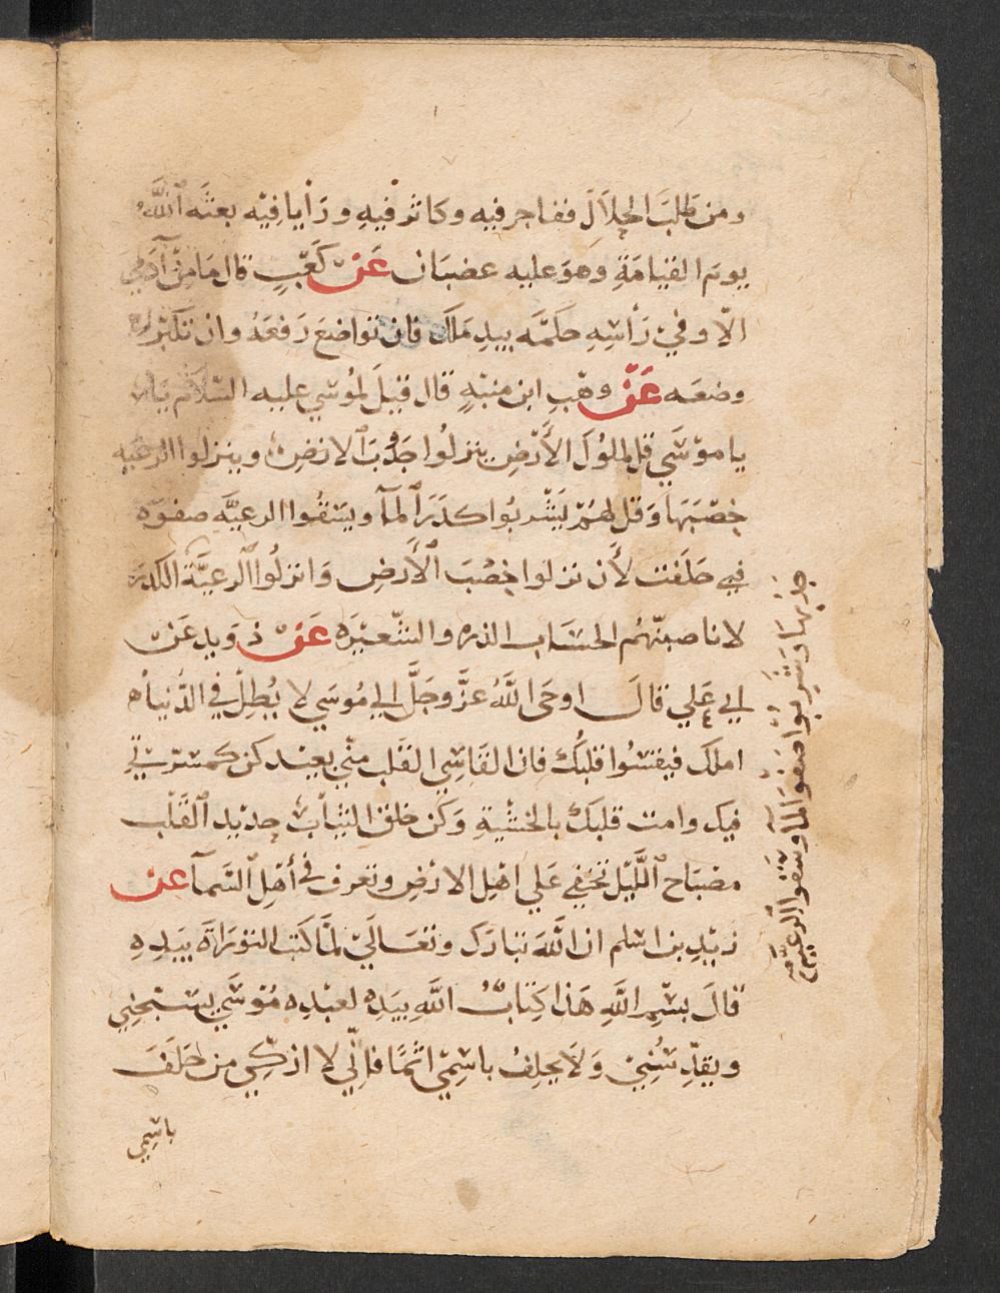 ومن طَلبَ الحِلاَلَ ففاجر فيه وكاثر فيهِ ورَأيا فيْه بعثَه ٱللَّهُ
يوم القيامَةِ وهوَ عليه عضبَان عَنْ كَعْبٍ قال مَا مِنْ آدَمِي
الّا وفيْ رَأسِهِ حكَمَّه بيدِ مَلَك فان تواضعَ رَفعَهُ وان تكَبرَ
وضعَه عَنْ وهْبِ ابن منبّهٍ قال قيْلَ لمُوسَي عليه السَّلَام
يا موْسَي قل لملُوك الأَرْضِ ينزلُوا جَدْبَ ٱلارْضِ وينزلوا الرعيه
خصْبَهَا وَقل لهُمْ يَشْربُوا كدَرَ ٱلمآ ويسْقُوا الرعيَّه صفوَه
في حلَفت لأَن نزلوا خصْبَ ٱلأَرضِ وَانزلُوا ٱلرعيَّةَ الكدرَ
لاناصبنّهُم الحسَاب الذره والشّعيْرَه عَنْ ذوَيد عَنْ
ابي عَلي قالَ اوحَى اللَّهُ عزَّ وجَلَّ الي مُوسَي لا يُطِلْ في الدُّنيأه
املك فيقسُوا قلبُكْ فان القَاسِي القَلب منّي بعيْد كن
فيك وامت قلبَكْ بالخشْيةِ وَكن خلقَ الثِيَاب جدْيد ٱلقَلْب
مصْبَاح ٱللَّيْل تخفي عَلي اهْل الارْض وتعرف في أهْلِ السّمآ عن
زيْدِ بن اسلم ان اللَّهَ تبارَك وتعَاليَ لمَّا كتب التورَاةَ بيَدِهِ
قالَ بسْمِ اللَّهِ هَذا كِتَابُ اللَّهِ بيَدِه لعبْدِه مُوْسَي يسَبحني
ويقدِّسُنِيْ وَلَا يحلِفْ باسْمِيْ اثمًا فاِنِّي لا ازكِّي من حَلَفَ
باسْمِي
جدْبهَا ويَشْربُوا صفوَ المآ ويسْقوا الرعيّه